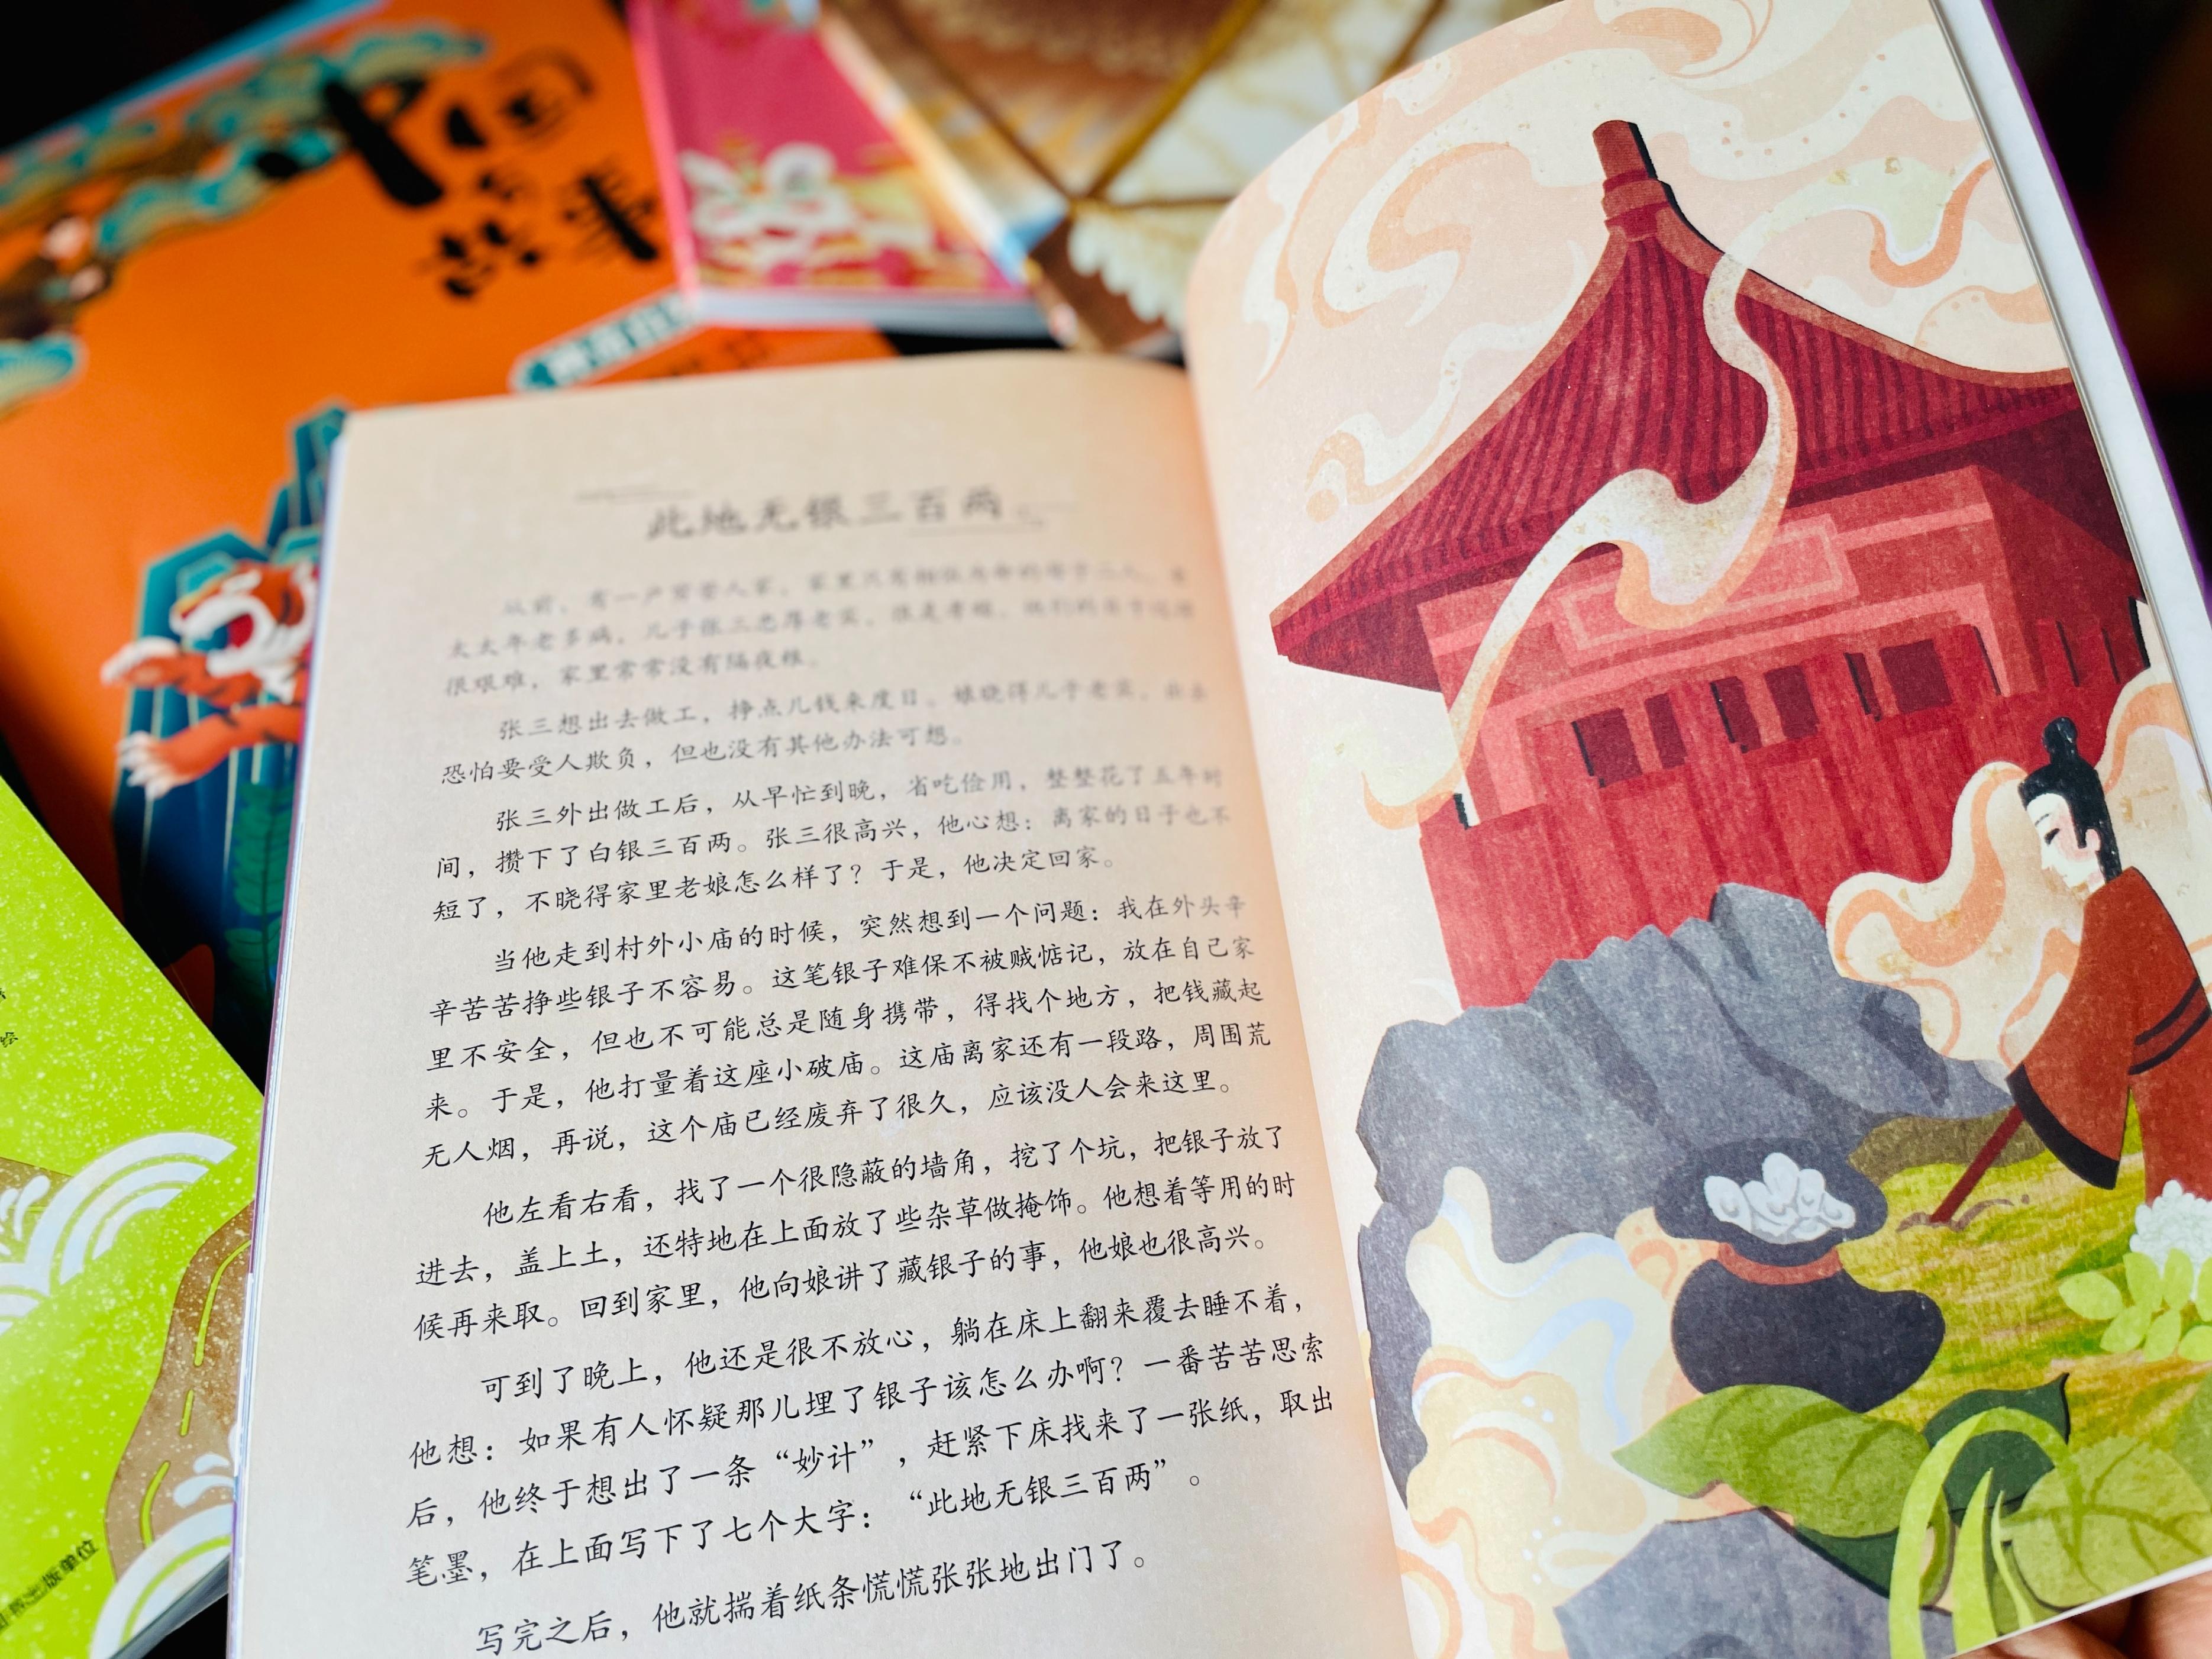 中国
故事
此地无银三百两
从前，有一户贫苦人家，家里只有相依为命的母子二人。老
太太年老多病，儿子张三忠厚老实，很是孝顺。他们的日子过得
很艰难，家里常常没有隔夜粮。
张三想出去做工，挣点儿钱来度日。娘晓得儿子老实，出去
恐怕要受人欺负，但也没有其他办法可想。
张三外出做工后，从早忙到晚，省吃俭用，整整花了五年时
间，攒下了白银三百两。张三很高兴，他心想：离家的日子也不
短了，不晓得家里老娘怎么样了？于是，他决定回家。
当他走到村外小庙的时候，突然想到一个问题：我在外头辛
辛苦苦挣些银子不容易。这笔银子难保不被贼惦记，放在自己家
里不安全，但也不可能总是随身携带，得找个地方，把钱藏起
来。于是，他打量着这座小破庙。这庙离家还有一段路，周围荒
无人烟，再说，这个庙已经废弃了很久，应该没人会来这里。
他左看右看，找了一个很隐蔽的墙角，挖了个坑，把银子放了
进去，盖上土，还特地在上面放了些杂草做掩饰。他想着等用的时
候再来取。回到家里，他向娘讲了藏银子的事，他娘也很高兴。
可到了晚上，他还是很不放心，躺在床上翻来覆去睡不着，
他想：如果有人怀疑那儿埋了银子该怎么办啊？一番苦苦思索
后，他终于想出了一条“妙计”，赶紧下床找来了一张纸，取出
笔墨，在上面写下了七个大字：“此地无银三百两”。
写完之后，他就揣着纸条慌慌张张地出门了。
绘
出版单位